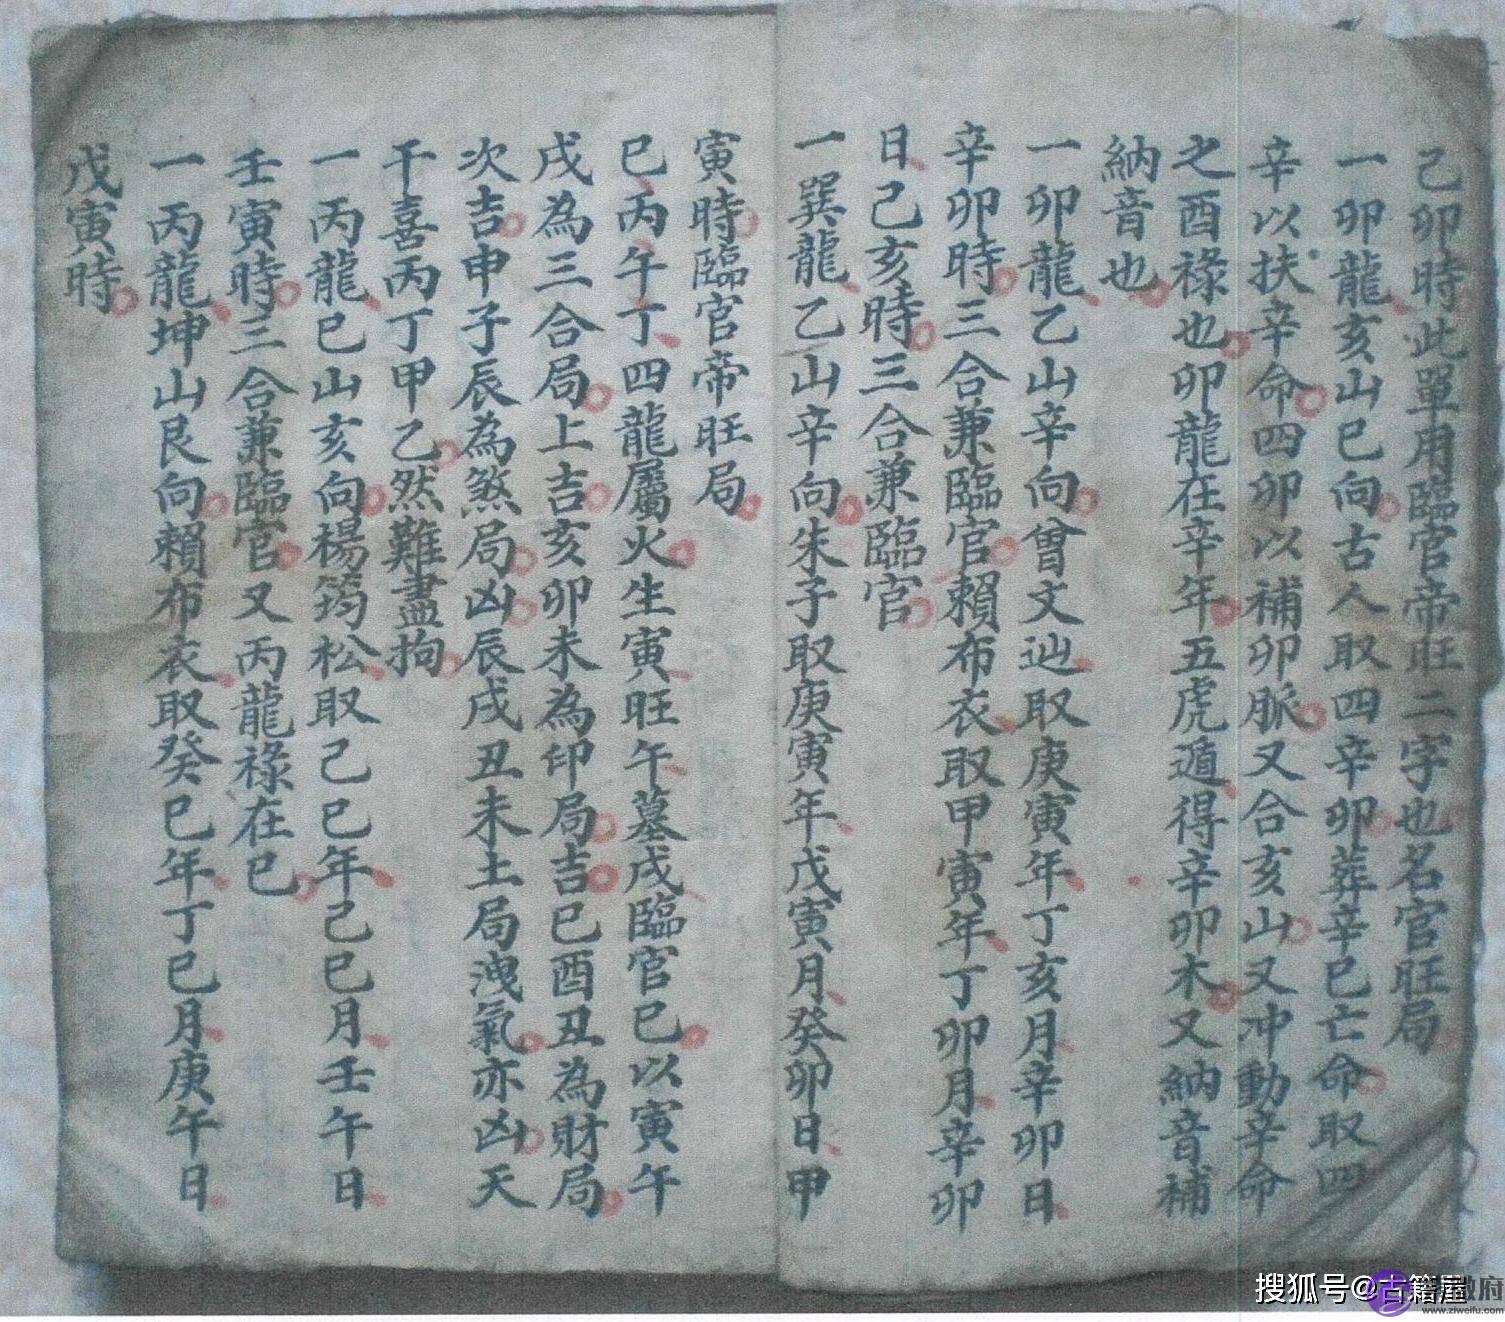 己卯時此單用臨官帝旺二字也名官旺局
一卯龍亥山巳向古人取四辛卯葬辛巳亡命取四
辛以扶辛命四卯以補卯脈又合亥山又冲動辛命
之酉祿也卯龍在辛年五虎遁得辛卯木又納音補
納音也
一卯龍乙山辛向曾文辿取庚寅年丁亥月辛卯日
辛卯時三合兼臨官賴布衣取甲寅年丁卯月辛卯
日己亥時三合兼臨官
一巽龍乙山辛向朱子取庚寅年戊寅月癸卯日甲
寅時臨官帝旺局
巳丙午丁四龍屬火生寅旺午墓戌臨官巳以寅午
戌為三合局上吉亥卯未為印局吉巳酉丑為財局
次吉申子辰為煞局凶辰戌丑未土局洩氣亦凶天
干喜丙丁甲乙然難盡拘
一丙龍巳山亥向楊筠松取己巳年己巳月壬午日
壬寅時三合兼臨官又丙龍祿在巳
一丙龍坤山艮向賴布衣取癸巳年丁巳月庚午日
戊寅時
搜狐号@古籍屋
www.ziweifu.com